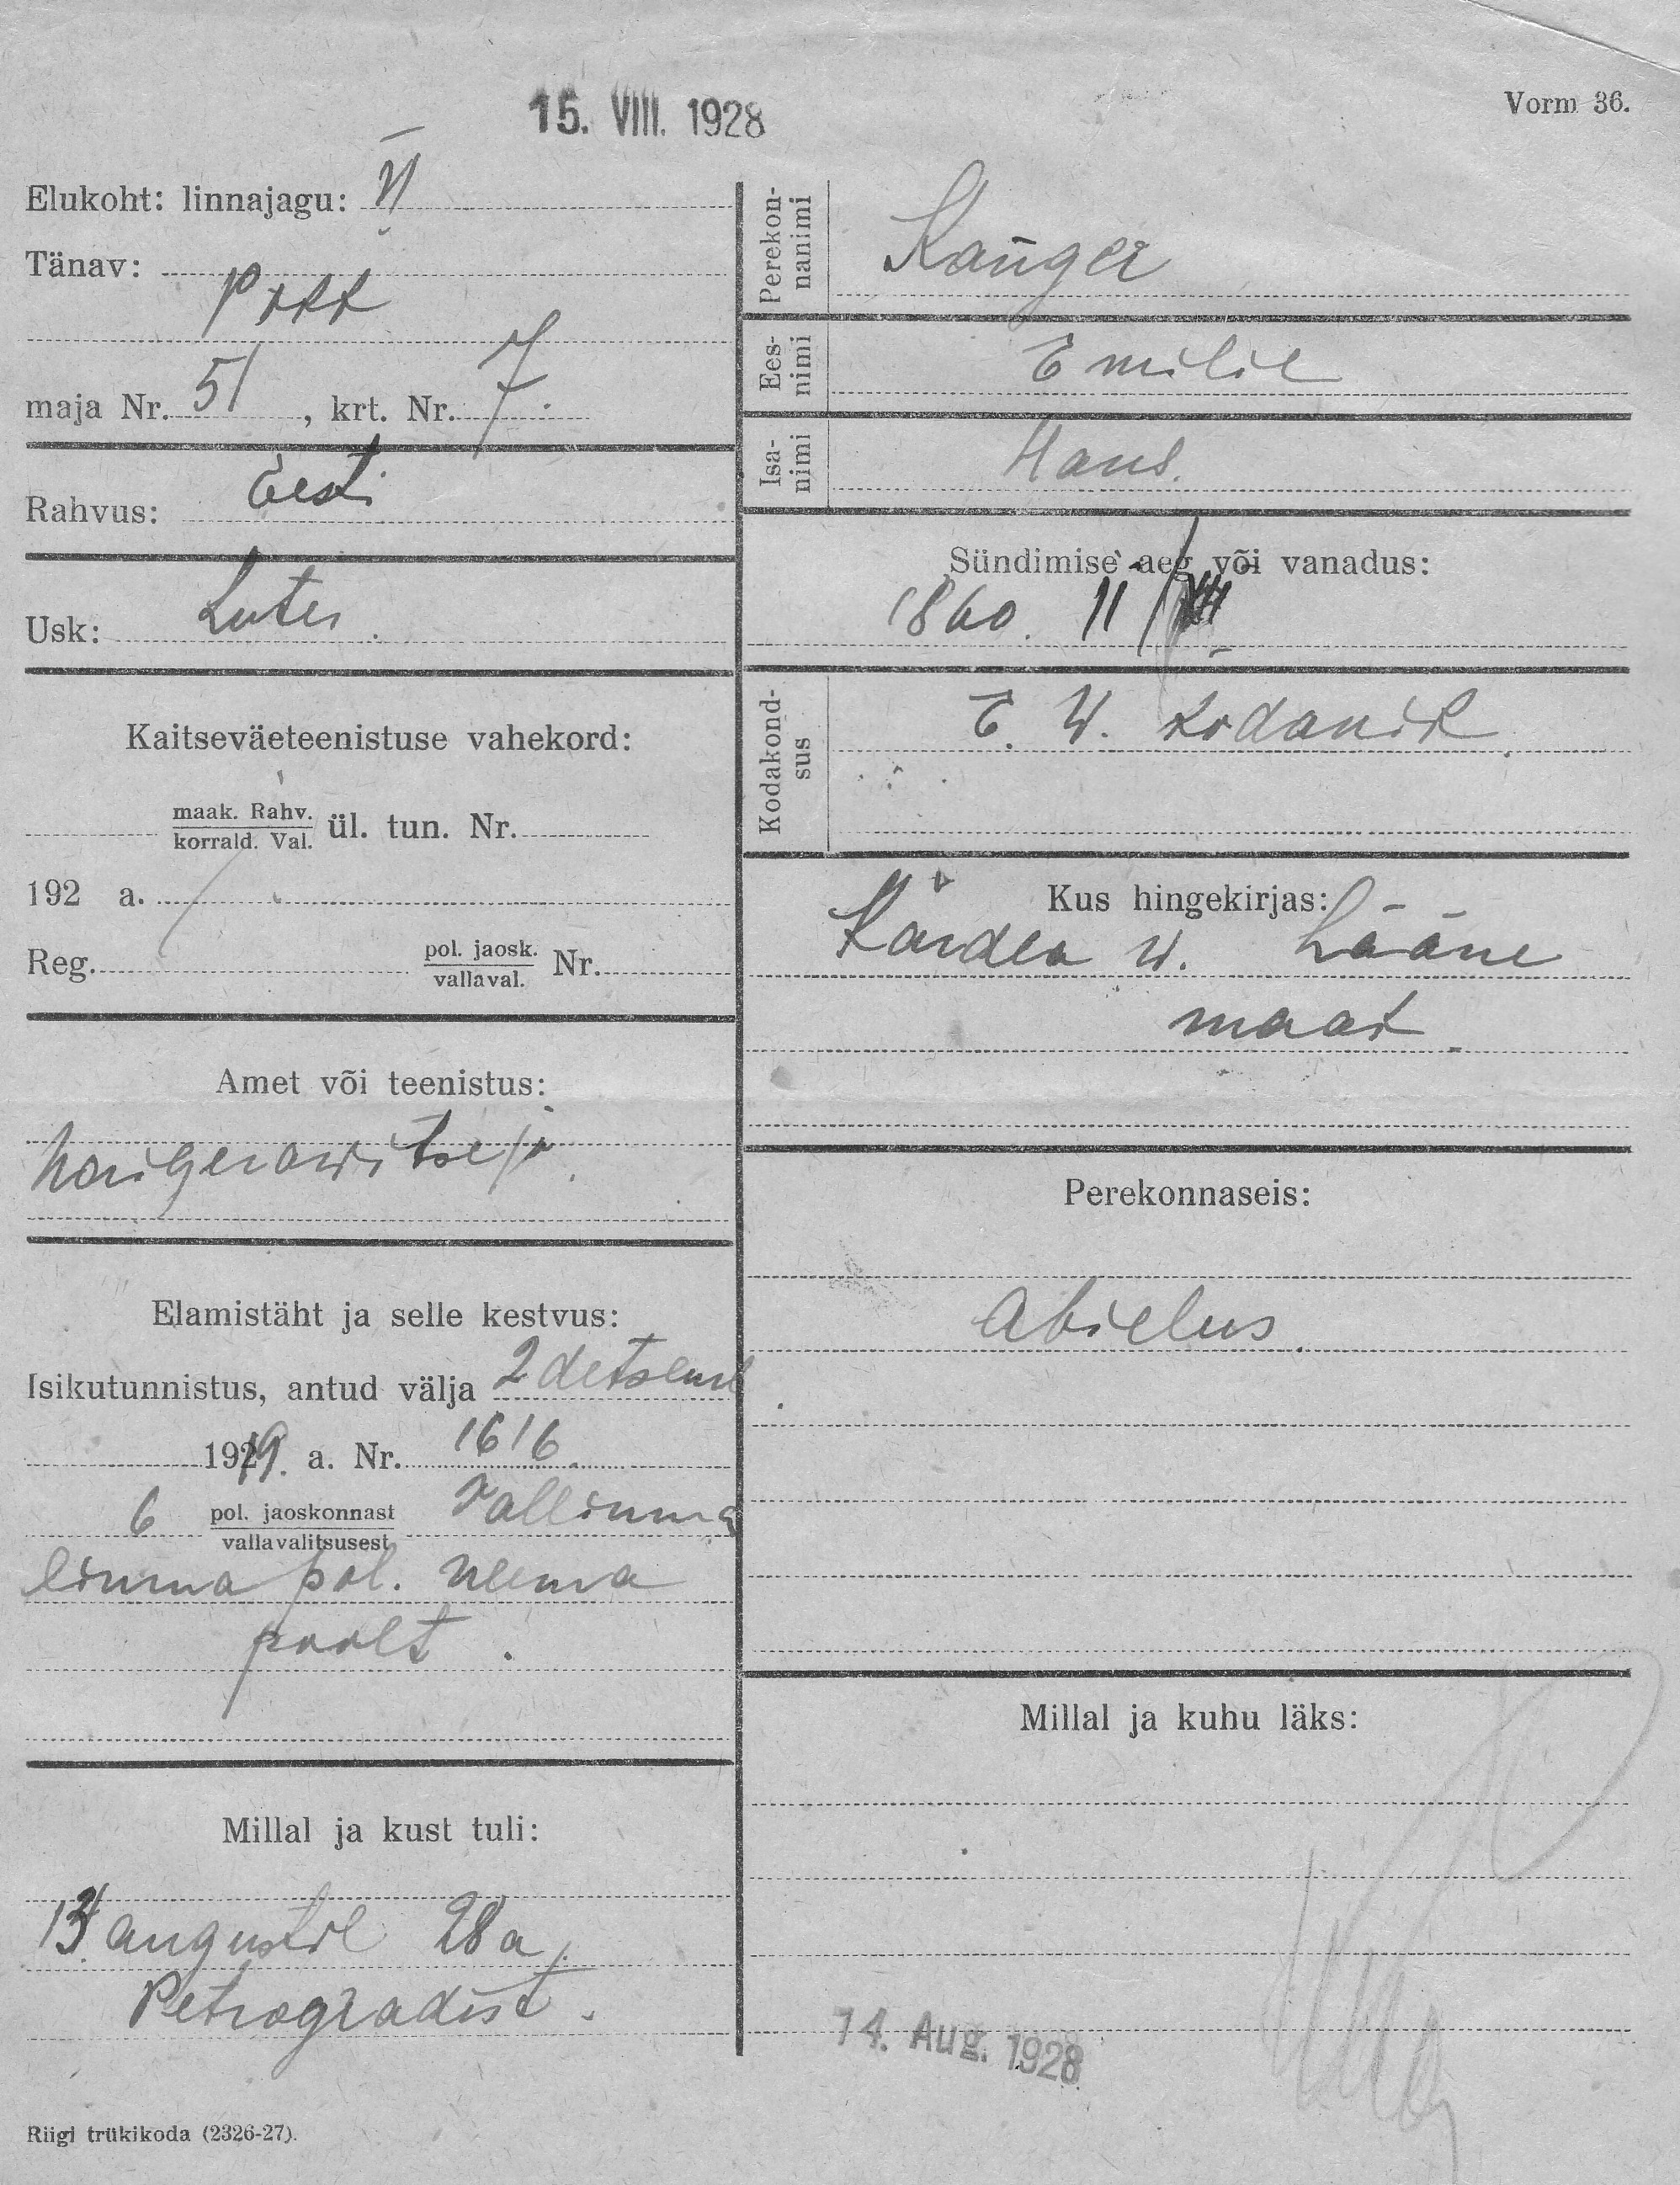 15. VIII. 1928
Vorm 36.
Elukoht: linnajagu: VI
Tänav:
maja Nr. 51, krt. Nr. 7.
Rahvus: Eesti
Usk: Luter.
Kaitseväeteenistuse vahekord:
maak. Rahv.
korrald. Val. ül. tun. Nr.
192 a.
Reg. pol. jaosk.
vallaval. Nr.
Amet või teenistus:
Haigerawitseja.
Elamistäht ja selle kestvus:
Isikutunnistus, antud välja 2 detsemb
1919. a. Nr. 1616.
6 pol. jaoskonnast Tallinna
vallavalitsusest
linna pol. ülema
poolt.
Millal ja kust tuli:
augustil 28 a.
Petrogradist.
Riigi trükikoda (2326-27).
Perekon-
nanimi Kanger
Ees-
nimi Emilie
Isa-
nimi Hans.
Sündimise aeg või vanadus:
1860. 11/
Kodakond-
sus E. W. kodanik.
Kus hingekirjas:
Kärdla w. Lääne
maal.
Perekonnaseis:
abielus.
Millal ja kuhu läks:
14. Aug. 1928